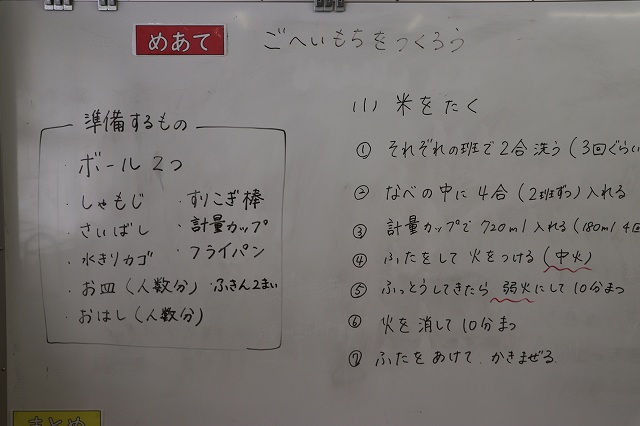 めあて ごへいもちをつくろう
準備するもの
・ボール 2つ
・しゃもじ
・さいばし
・水きりカゴ
・お皿(人数分)
・おはし(人数分)
・すりこぎ棒
・計量カップ
・フライパン
・ふきん2まい
(1) 米をたく
① それぞれの班で2合洗う(3回ぐらい
② なべの中に4合(2班ずつ)入れる
③ 計量カップで720ml入れる(180ml 4回
④ ふたをして火をつける(中火)
⑤ ふっとうしてきたら弱火にして10分まつ
⑥ 火を消して10分まつ
⑦ ふたをあけて、かきまぜる
まとめ